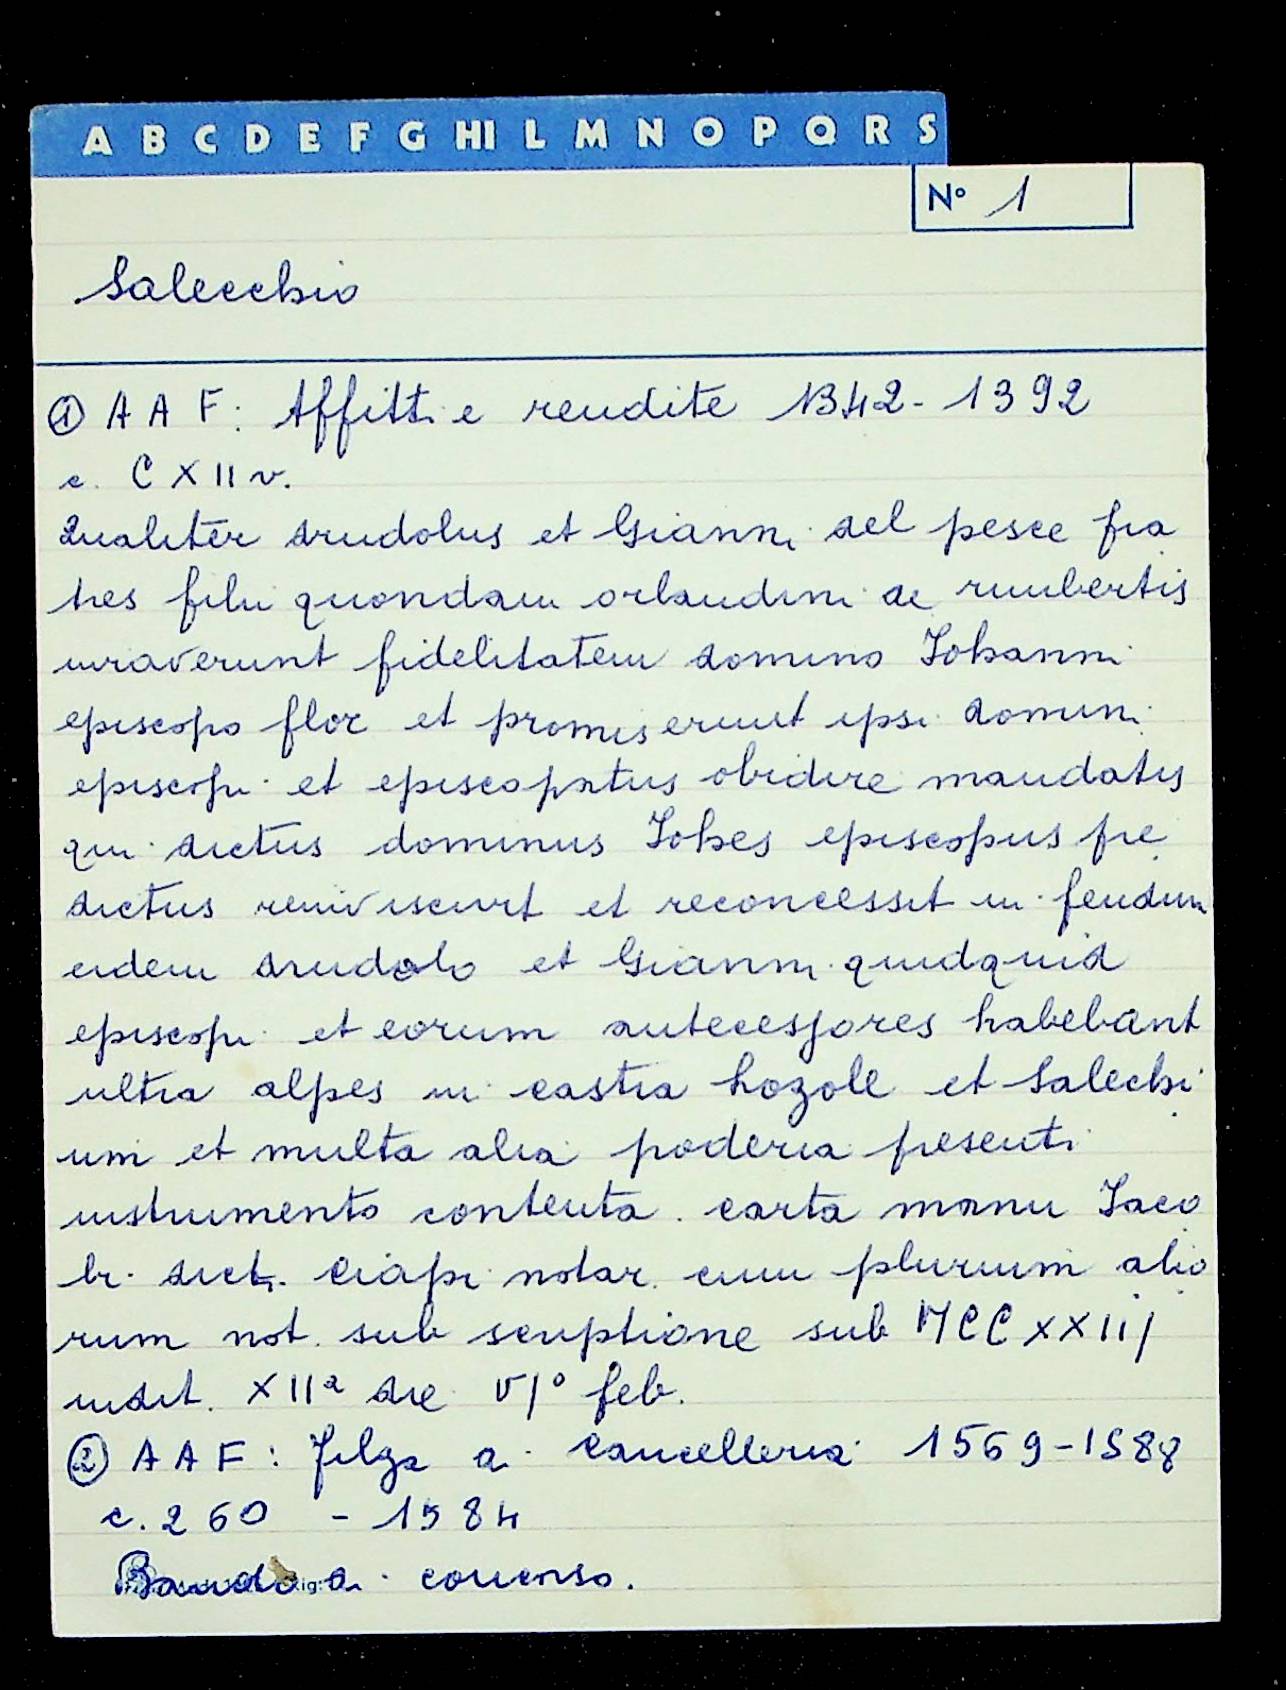 A B C D E F G HI L M N O P Q R S
N° 1
Salecchio
① A A F: Affitti e rendite 1342-1392
c. C X II v.
Qualiter drudolus et Gianni del pesce fra
tres filii quondam orlandini de rumbertis
iuraverunt fidelitatem domino Iohanni
episcopo flor et promiserunt ipsi domini
episcopi et episcopatus obidire mandatis
qui dictus dominus Iohes episcopus pre
dictus et reconcessit in feudum
eidem drudolo et Gianni quidquid
episcopi et eorum antecessores habebant
ultra alpes in castra lozole et Salechi
um et multa alia poderia presenti
instrumento contenta. carta manu Iaco
bi dict. Ciapi notar. cum plurium alio
rum not. sub scriptione sub MCCXXIIJ
indit. XIIa die VI° feb.
② A A F: Filza di Cancelleria 1569-1588
c. 260 - 1584
Bando di